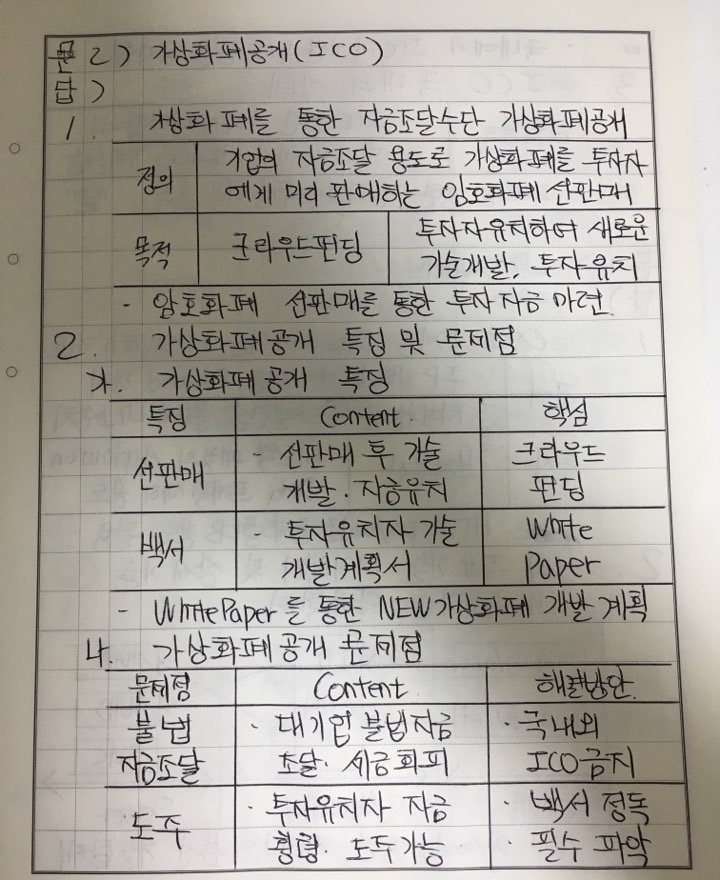 문 2) 가상화폐공개(ICO)
답)
1. 가상화폐를 통한 자금조달수단 가상화폐공개
정의 기업의 자금조달 용도로 가상화폐를 투자자
에게 미리 판매하는 암호화폐 선판매
목적 크라우드펀딩 투자자유치하여 새로운
기술개발, 투자유치
- 암호화폐 선판매를 통한 투자자금 마련.
2. 가상화폐공개 특징 및 문제점
가. 가상화폐공개 특징
특징 Content. 핵심
선판매 - 선판매 후 기술 크라우드
개발·자금유치 펀딩
백서 - 투자유치자 기술 White
개발계획서 Paper
- WhitePaper를 통한 NEW가상화폐 개발 계획
나. 가상화폐공개 문제점
문제점 Content. 해결방안.
불법 · 대기업 불법자금 · 국내외
자금조달 조달·세금회피 ICO금지
도주 · 투자유치자 자금 · 백서 정독
횡령·도주가능 · 필수 파악